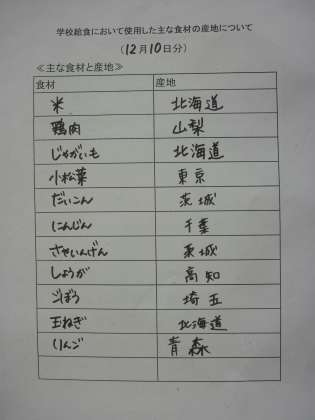 学校給食において使用した主な食材の産地について
(12月10日分)
≪主な食材と産地≫
食材 産地
米 北海道
鶏肉 山梨
じゃがいも 北海道
小松菜 東京
だいこん 茨城
にんじん 千葉
さやいんげん 茨城
しょうが 高知
ごぼう 埼玉
玉ねぎ 北海道
りんご 青森